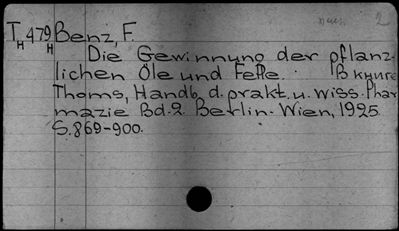 2
T 479 Benz, F.
H H
Die Gewinnung der pflanz-
lichen Öle und Fette. В книге
Thoms, Handb. d. prakt. u. wiss. Phar
mazie Bd. 2. Berlin-Wien, 1925.
S. 869-900.